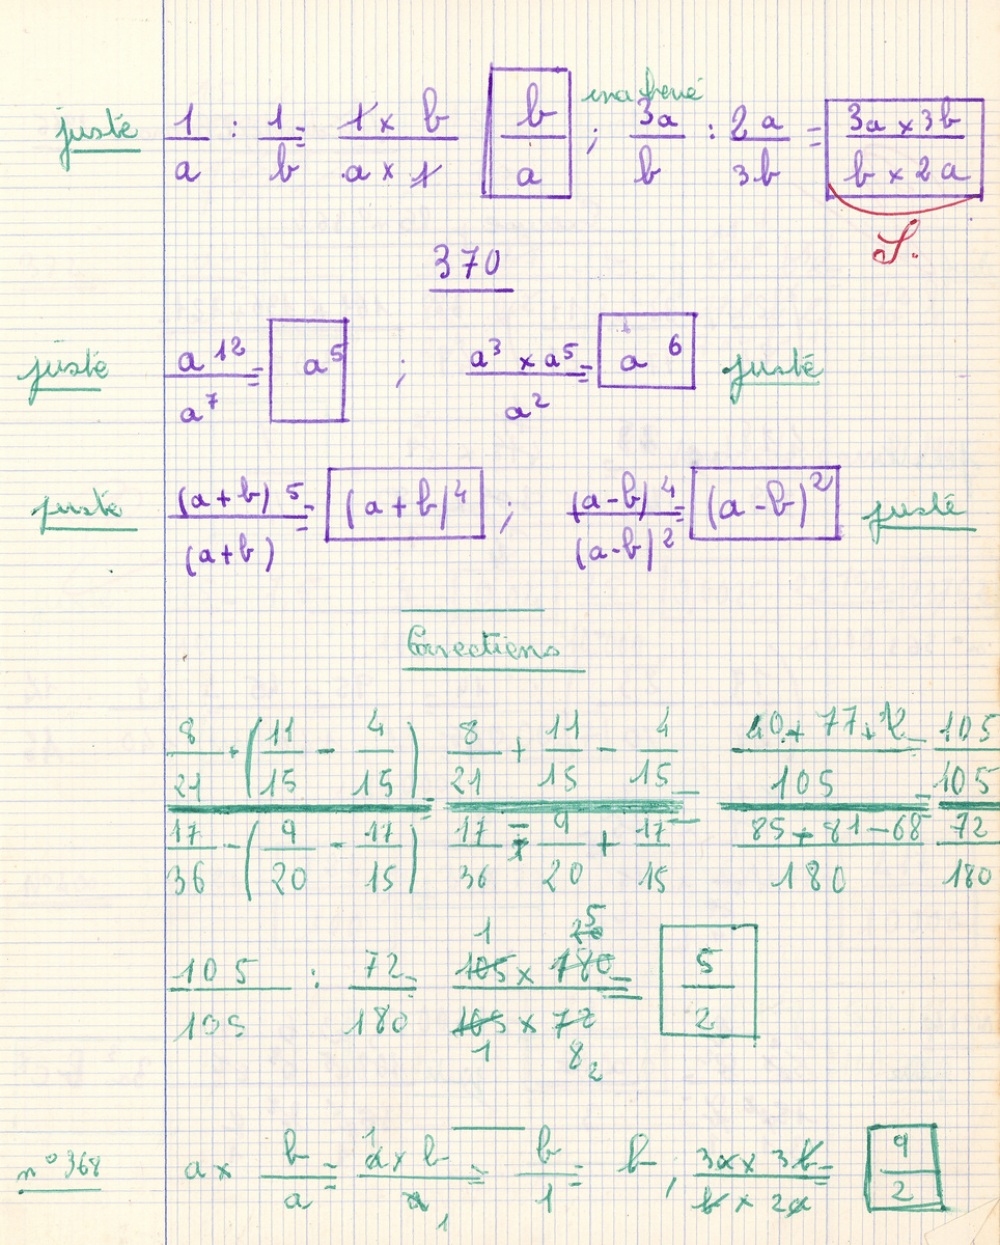 juste 1/a : 1/b = 1 × b / a × 1 = b/a ; inachevé 3a/b : 2a/3b = 3a × 3b / b × 2a
S.
370
juste a^12 / a^7 = a^5 ; a^3 × a^5 / a^2 = a^6 juste
juste (a+b)^5 / (a+b) = (a+b)^4 ; (a-b)^4 / (a-b)^2 = (a-b)^2 juste
Corrections
8/21 + (11/15 - 4/15) = 8/21 + 11/15 - 4/15 = 40 + 77 + 12 / 105 = 105/105
17/36 - (9/20 - 17/15) = 17/36 - 9/20 + 17/15 = 85 + 81 - 68 / 180 = 72/180
105/105 : 72/180 = 105 × 180 / 105 × 72 = 5/2
1 25
1 8 2
n° 368 a × b/a = a × b / a = b/1 = b ; 3a × 3b / b × 2a = 9/2